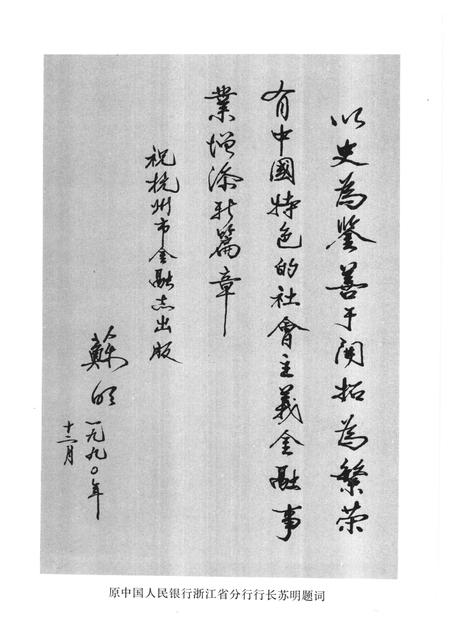 以史為鉴善于開拓為繁荣
有中國特色的社會主義金融事
業增添新篇章
祝杭州市金融志出版
蘇明
一九九〇年
十二月
原中国人民银行浙江省分行行长苏明题词